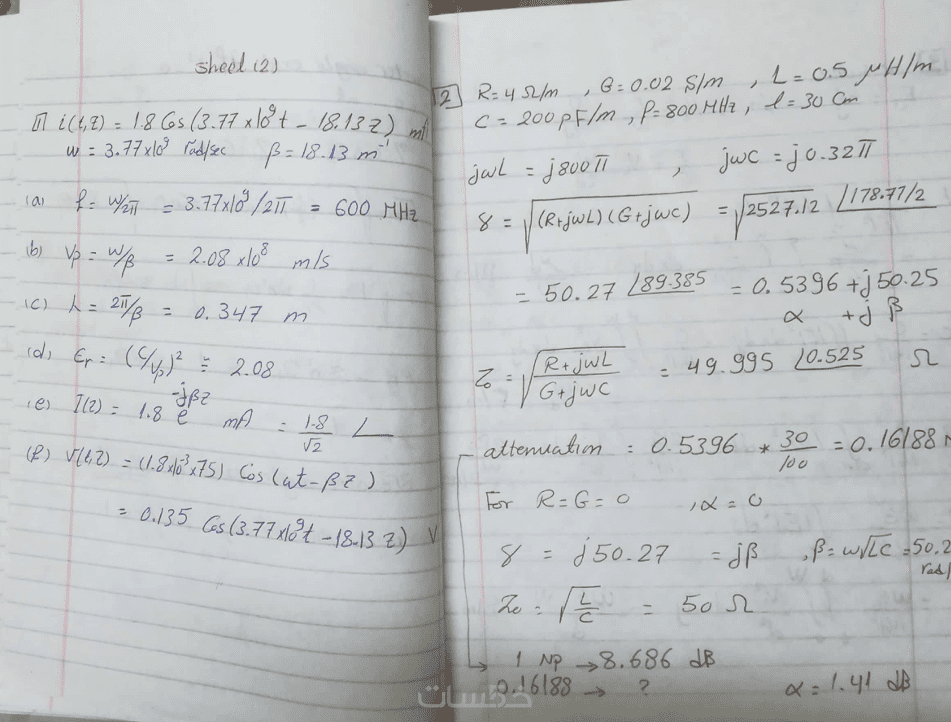 sheet (2)
1 i(t,z) = 1.8 Cos (3.77 x10⁹t - 18.13 z) m
w = 3.77x10⁹ rad/sec β = 18.13 m⁻¹
(a) f = w/2π = 3.77x10⁹/2π = 600 MHz
(b) Vp = w/β = 2.08 x10⁸ m/s
(c) λ = 2π/β = 0.347 m
(d) Er = (C/Vp)² = 2.08
(e) I(z) = 1.8 e^-jβz mA = 1.8/√2 ∠
(f) V(t,z) = (1.8x10⁻³x75) Cos (wt - βz)
= 0.135 Cos (3.77x10⁹t - 18.13 z) V
2 R = 4 Ω/m , G = 0.02 S/m , L = 0.5 μH/m
C = 200 pF/m , f = 800 MHz , l = 30 Cm
jwL = j800π , jwC = j0.32π
γ = √(R+jwL)(G+jwC) = √2527.12 ∠178.77/2
= 50.27 ∠89.385 = 0.5396 + j50.25
α + j β
Zo = √R+jwL/G+jwC = 49.995 ∠0.525 Ω
attenuation = 0.5396 * 30/100 = 0.16188 N
For R = G = 0 , α = 0
γ = j50.27 = jβ , β = w√LC = 50.2
rad/
Zo = √L/C = 50 Ω
1 Np → 8.686 dB
0.16188 → ? α = 1.41 dB
خمسات